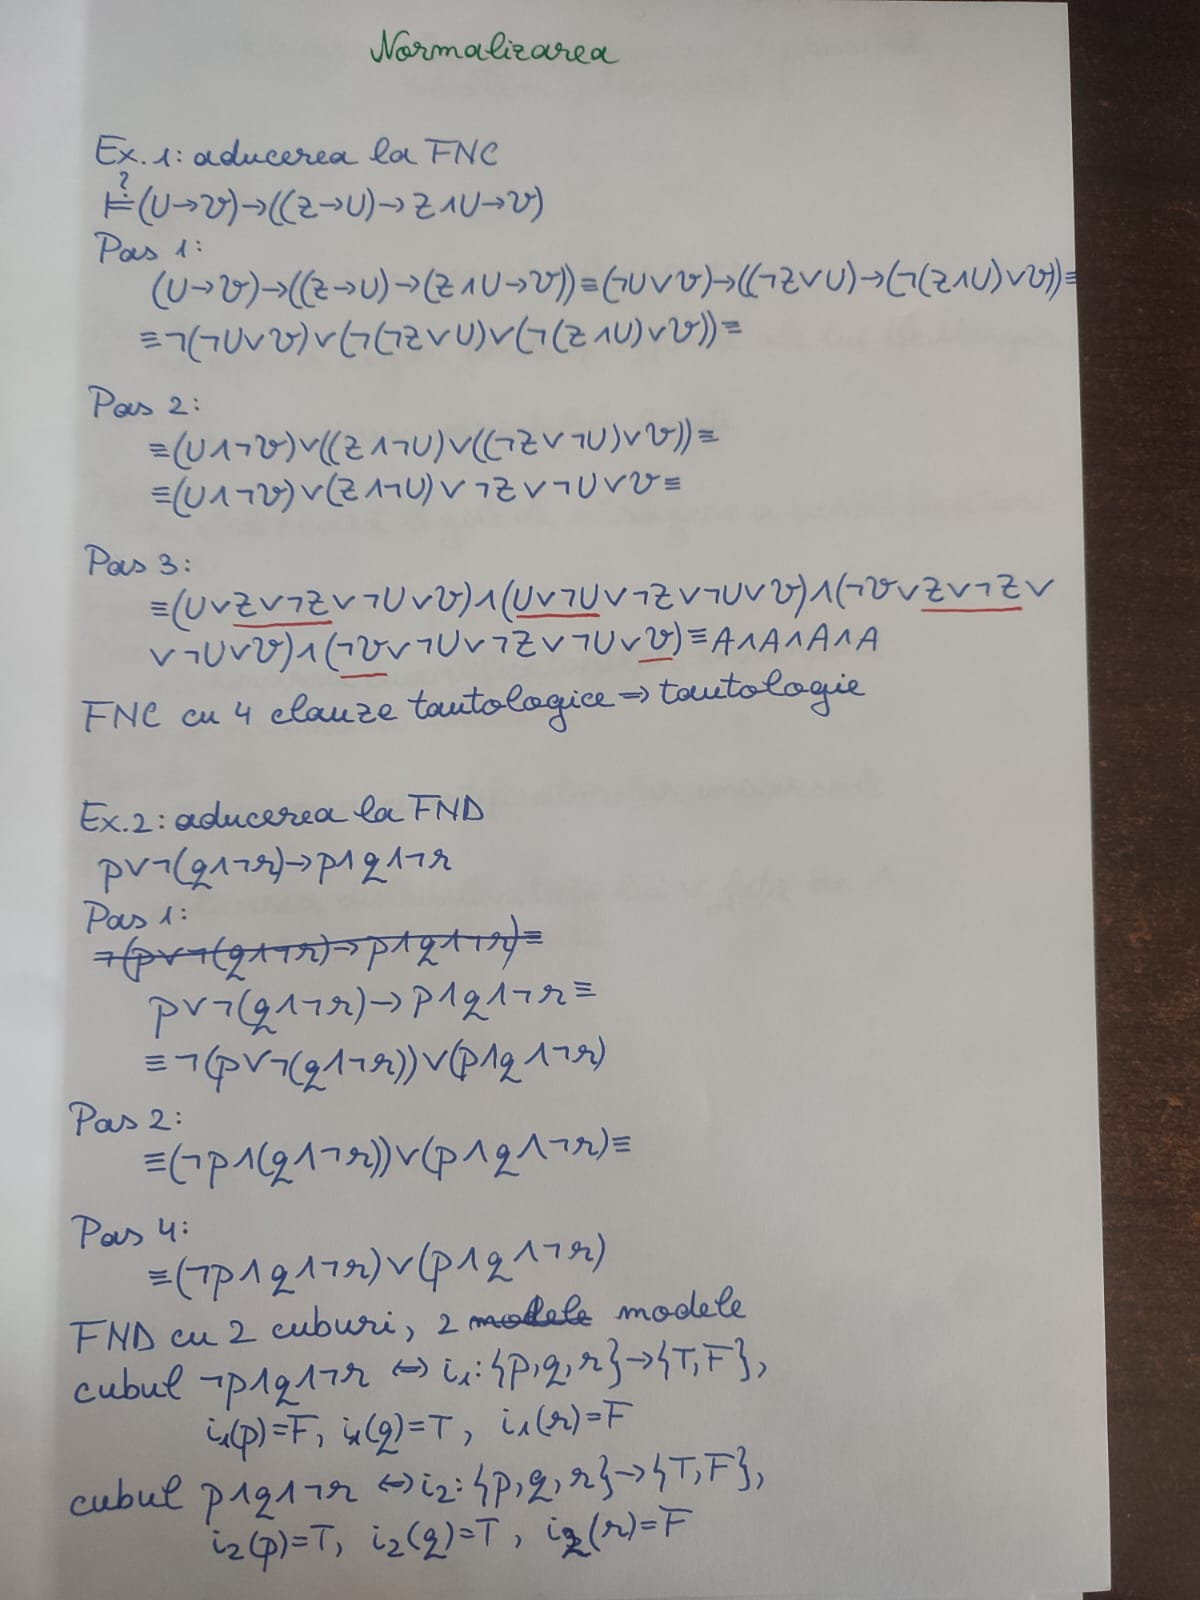 Normalizarea
Ex. 1: aducerea la FNC
?
⊨(U→V)→((Z→U)→Z∧U→V)
Pas 1:
(U→V)→((Z→U)→(Z∧U→V))≡(¬U∨V)→((¬Z∨U)→(¬(Z∧U)∨V))≡
≡¬(¬U∨V)∨(¬(¬Z∨U)∨(¬(Z∧U)∨V))≡
Pas 2:
≡(U∧¬V)∨((Z∧¬U)∨((¬Z∨¬U)∨V))≡
≡(U∧¬V)∨(Z∧¬U)∨¬Z∨¬U∨V≡
Pas 3:
≡(U∨Z∨¬Z∨¬U∨V)∧(U∨¬U∨¬Z∨¬U∨V)∧(¬V∨Z∨¬Z∨
∨¬U∨V)∧(¬V∨¬U∨¬Z∨¬U∨V)≡A∧A∧A∧A
FNC cu 4 clauze tautologice ⇒ tautologie
Ex. 2: aducerea la FND
p∨¬(q∧¬r)→p∧q∧¬r
Pas 1:
¬(p∨¬(q∧¬r)→p∧q∧¬r)≡
p∨¬(q∧¬r)→p∧q∧¬r≡
≡¬(p∨¬(q∧¬r))∨(p∧q∧¬r)
Pas 2:
≡(¬p∧(q∧¬r))∨(p∧q∧¬r)≡
Pas 4:
≡(¬p∧q∧¬r)∨(p∧q∧¬r)
FND cu 2 cuburi, 2 modele modele
cubul ¬p∧q∧¬r ⇔ i₁:{p,q,r}→{T,F},
i₁(p)=F, i₁(q)=T, i₁(r)=F
cubul p∧q∧¬r ⇔ i₂:{p,q,r}→{T,F},
i₂(p)=T, i₂(q)=T, i₂(r)=F